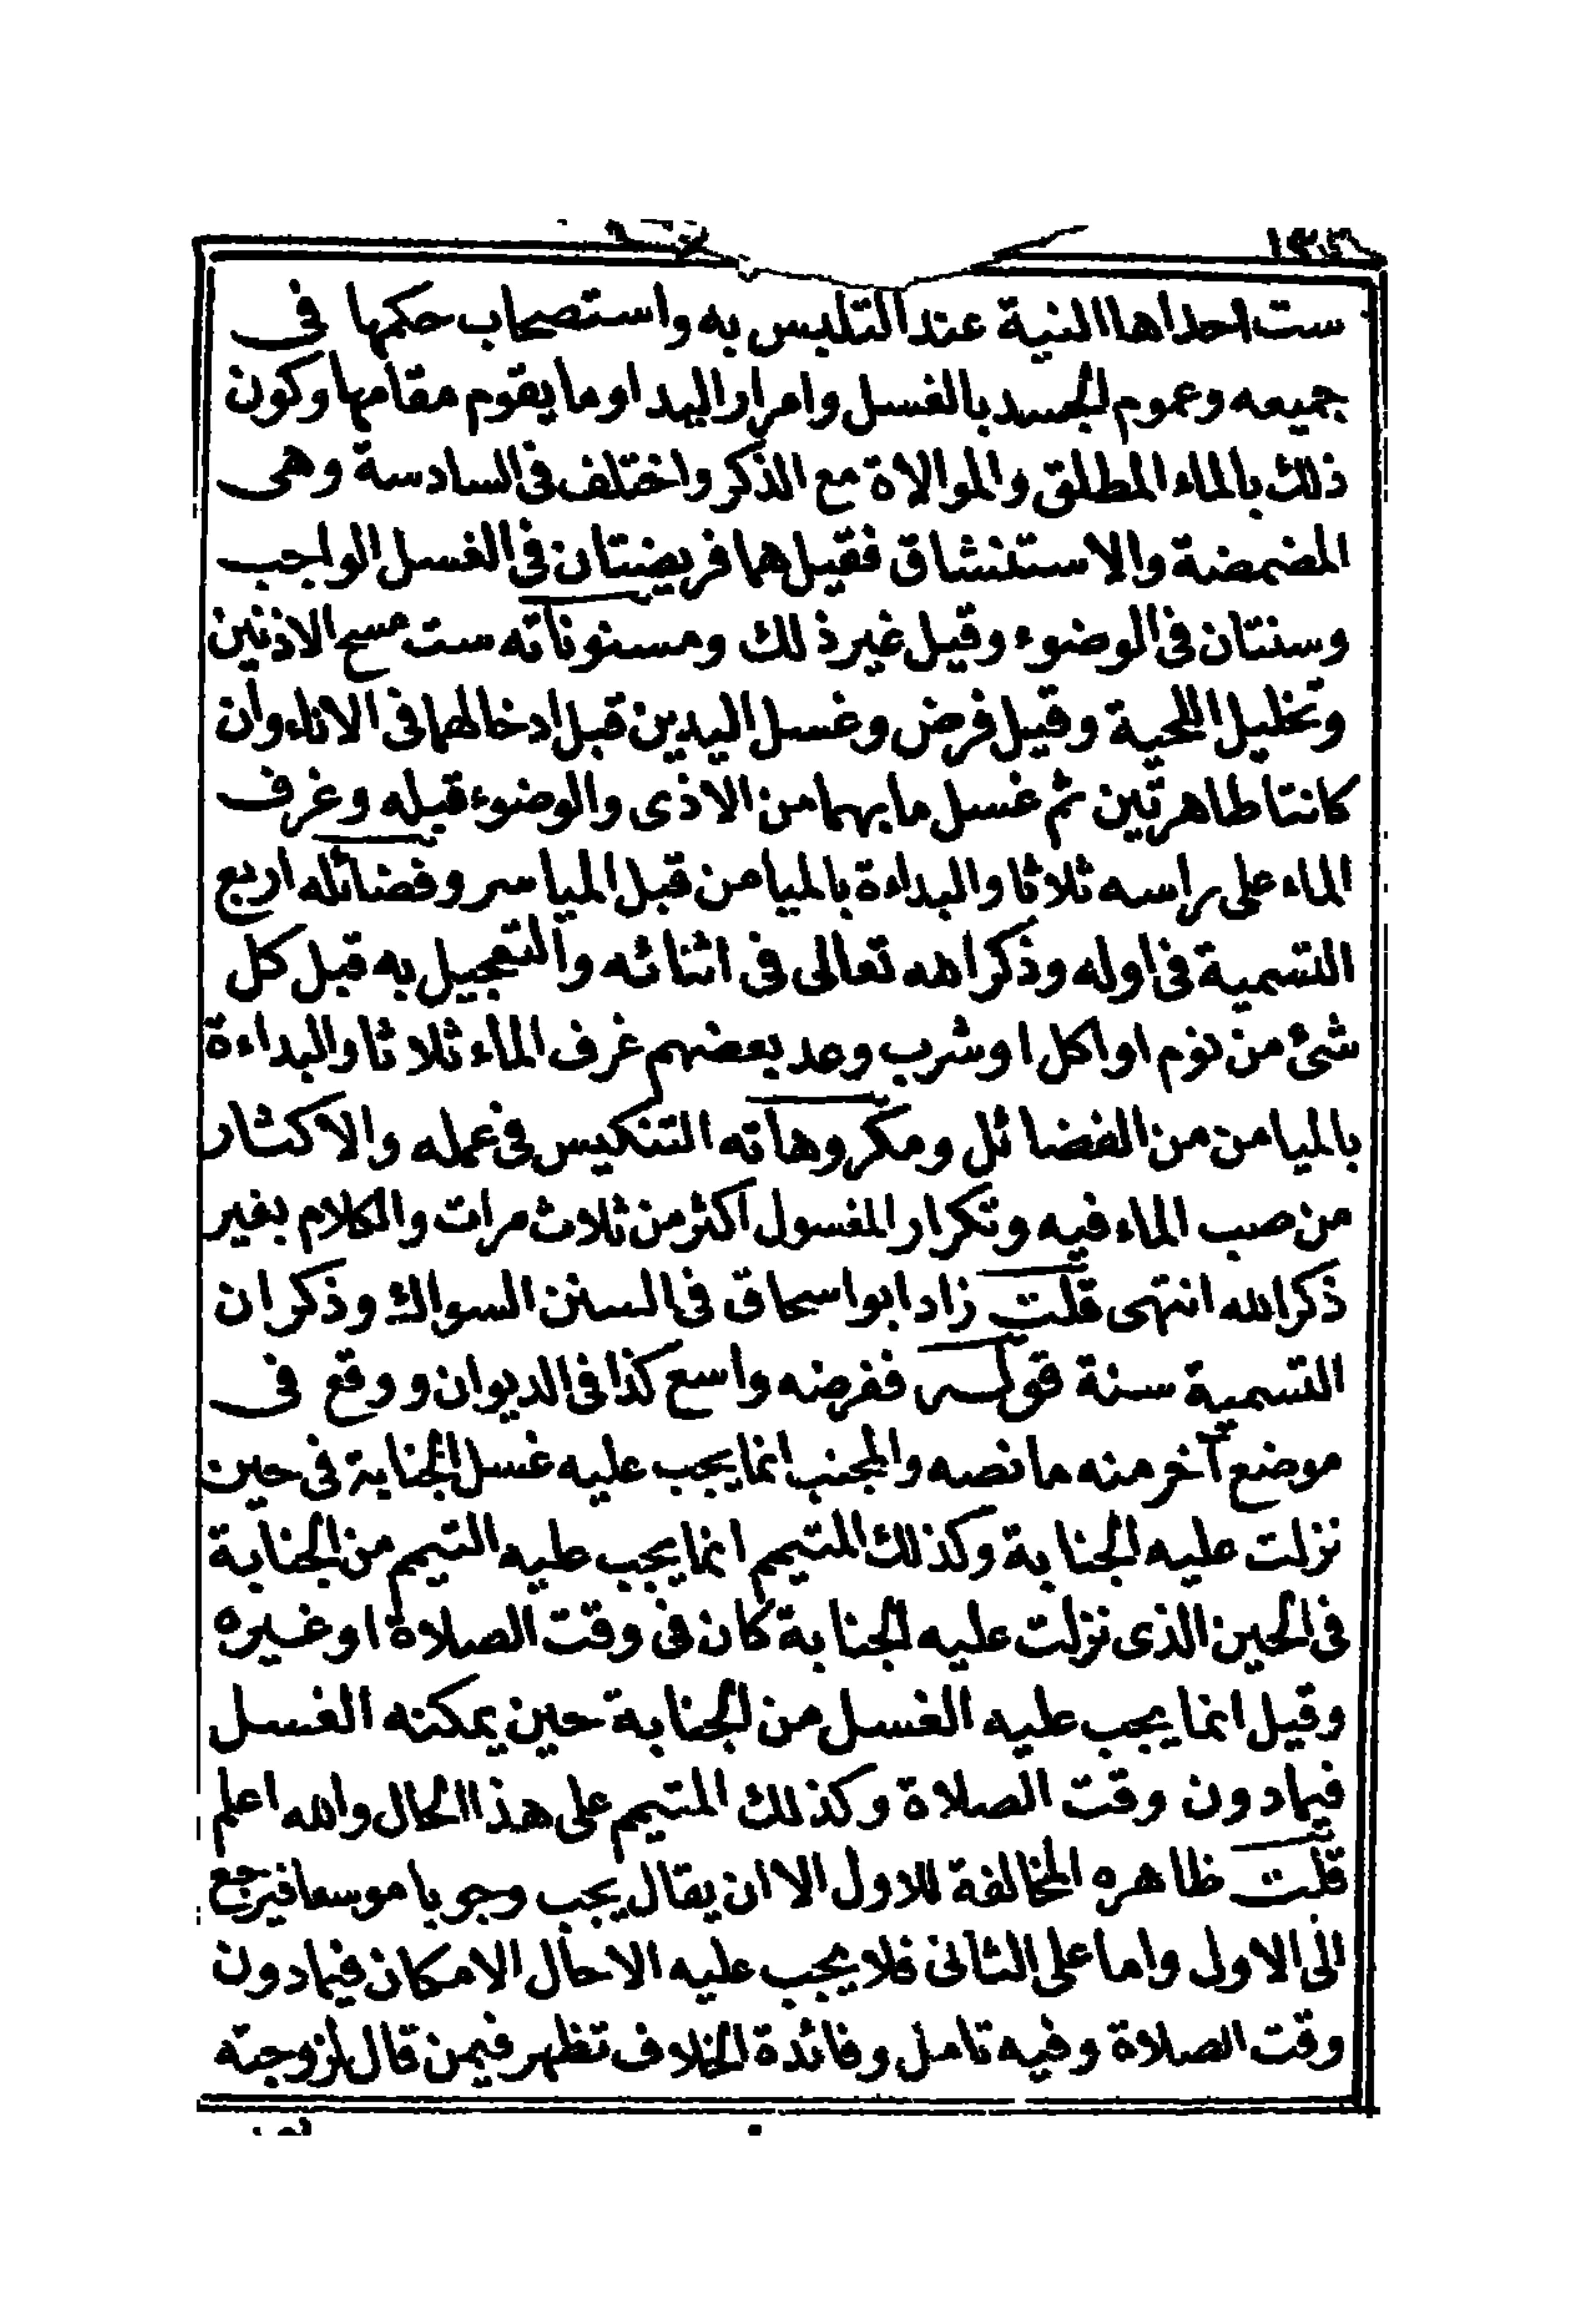 ست احداها النية عند التلبس به واستصحاب حكمها فى
جميعه وعموم الجسد بالغسل وامرار اليد او ما يقوم مقامها وكون
ذلك بالماء المطلق والموالاة مع الذكر واختلف فى السادسة وهى
المضمضة والاستنشاق فقيل هما فريضتان فى الغسل الواجب
وسنتان فى الوضوء وقيل غير ذلك ومسنوناته ست مسح الاذنين
وتخليل اللحية وقيل فرض وغسل اليدين قبل ادخالهما فى الاناء وأن
كانتا طاهرتين ثم غسل ما بهما من الاذى والوضوء قبله وغرف
الماء على راسه ثلاثا والبداءة بالميامن قبل المياسر وفضائله اربع
التسمية فى اوله وذكر الله تعالى فى اثنائه والتعجيل به قبل كل
شئ من نوم او اكل او شرب وعد بعضهم غرف الماء ثلاثا والبداءة
بالميامن من الفضائل ومكروهاته التنكيس فى عمله والاكثار
من صب الماء فيه وتكرار المغسول اكثر من ثلاث مرات والكلام بغير
ذكر الله انتهى قلت زاد ابو اسحاق فى السنن السواك وذكر ان
التسمية سنة قوله ففرضه واسع كذا فى الديوان ووقع فى
موضع آخر منه ما نصه والمجنب انما يجب عليه غسل الجنابة فى حين
نزلت عليه الجنابة وكذلك المتيمم انما يجب عليه التيمم من الجنابة
فى الحين الذى نزلت عليه الجنابة كان فى وقت الصلاة او غيره
وقيل انما يجب عليه الغسل من الجنابة حين يمكنه الغسل
فيما دون وقت الصلاة وكذلك المتيمم على هذا الحال والله اعلم
قلت ظاهره المخالفة للاول الا ان يقال يجب وجوبا موسعا فيرجع
الى الاول واما على الثانى فلا يجب عليه الا حال الامكان فيما دون
وقت الصلاة وفيه تامل وفائدة الخلاف تظهر فيمن قال لزوجته